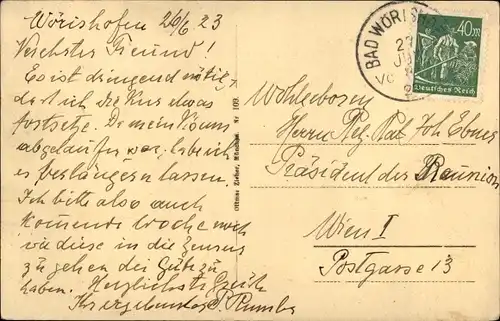 Wörishofen 26/6 23
Verehrter Freund!
Es ist dringend nötig,
dass ich die Kur etwas
fortsetze. Da mein Visum
abgelaufen war, liess ich
es verlängern lassen.
Ich bitte also auch
kommende Woche
wie diese in die Zensur
zu gehen die Güte zu
haben. Herzlichste Grüße
Ihr ergebenster
Ottmar Zieher, München. Nr 1093
BAD WÖRIS
40 M
Deutsches Reich
Wohlgeboren
Herrn Reg. Rat Joh Ebner
Präsident der Reunion
Wien I
Postgasse 13